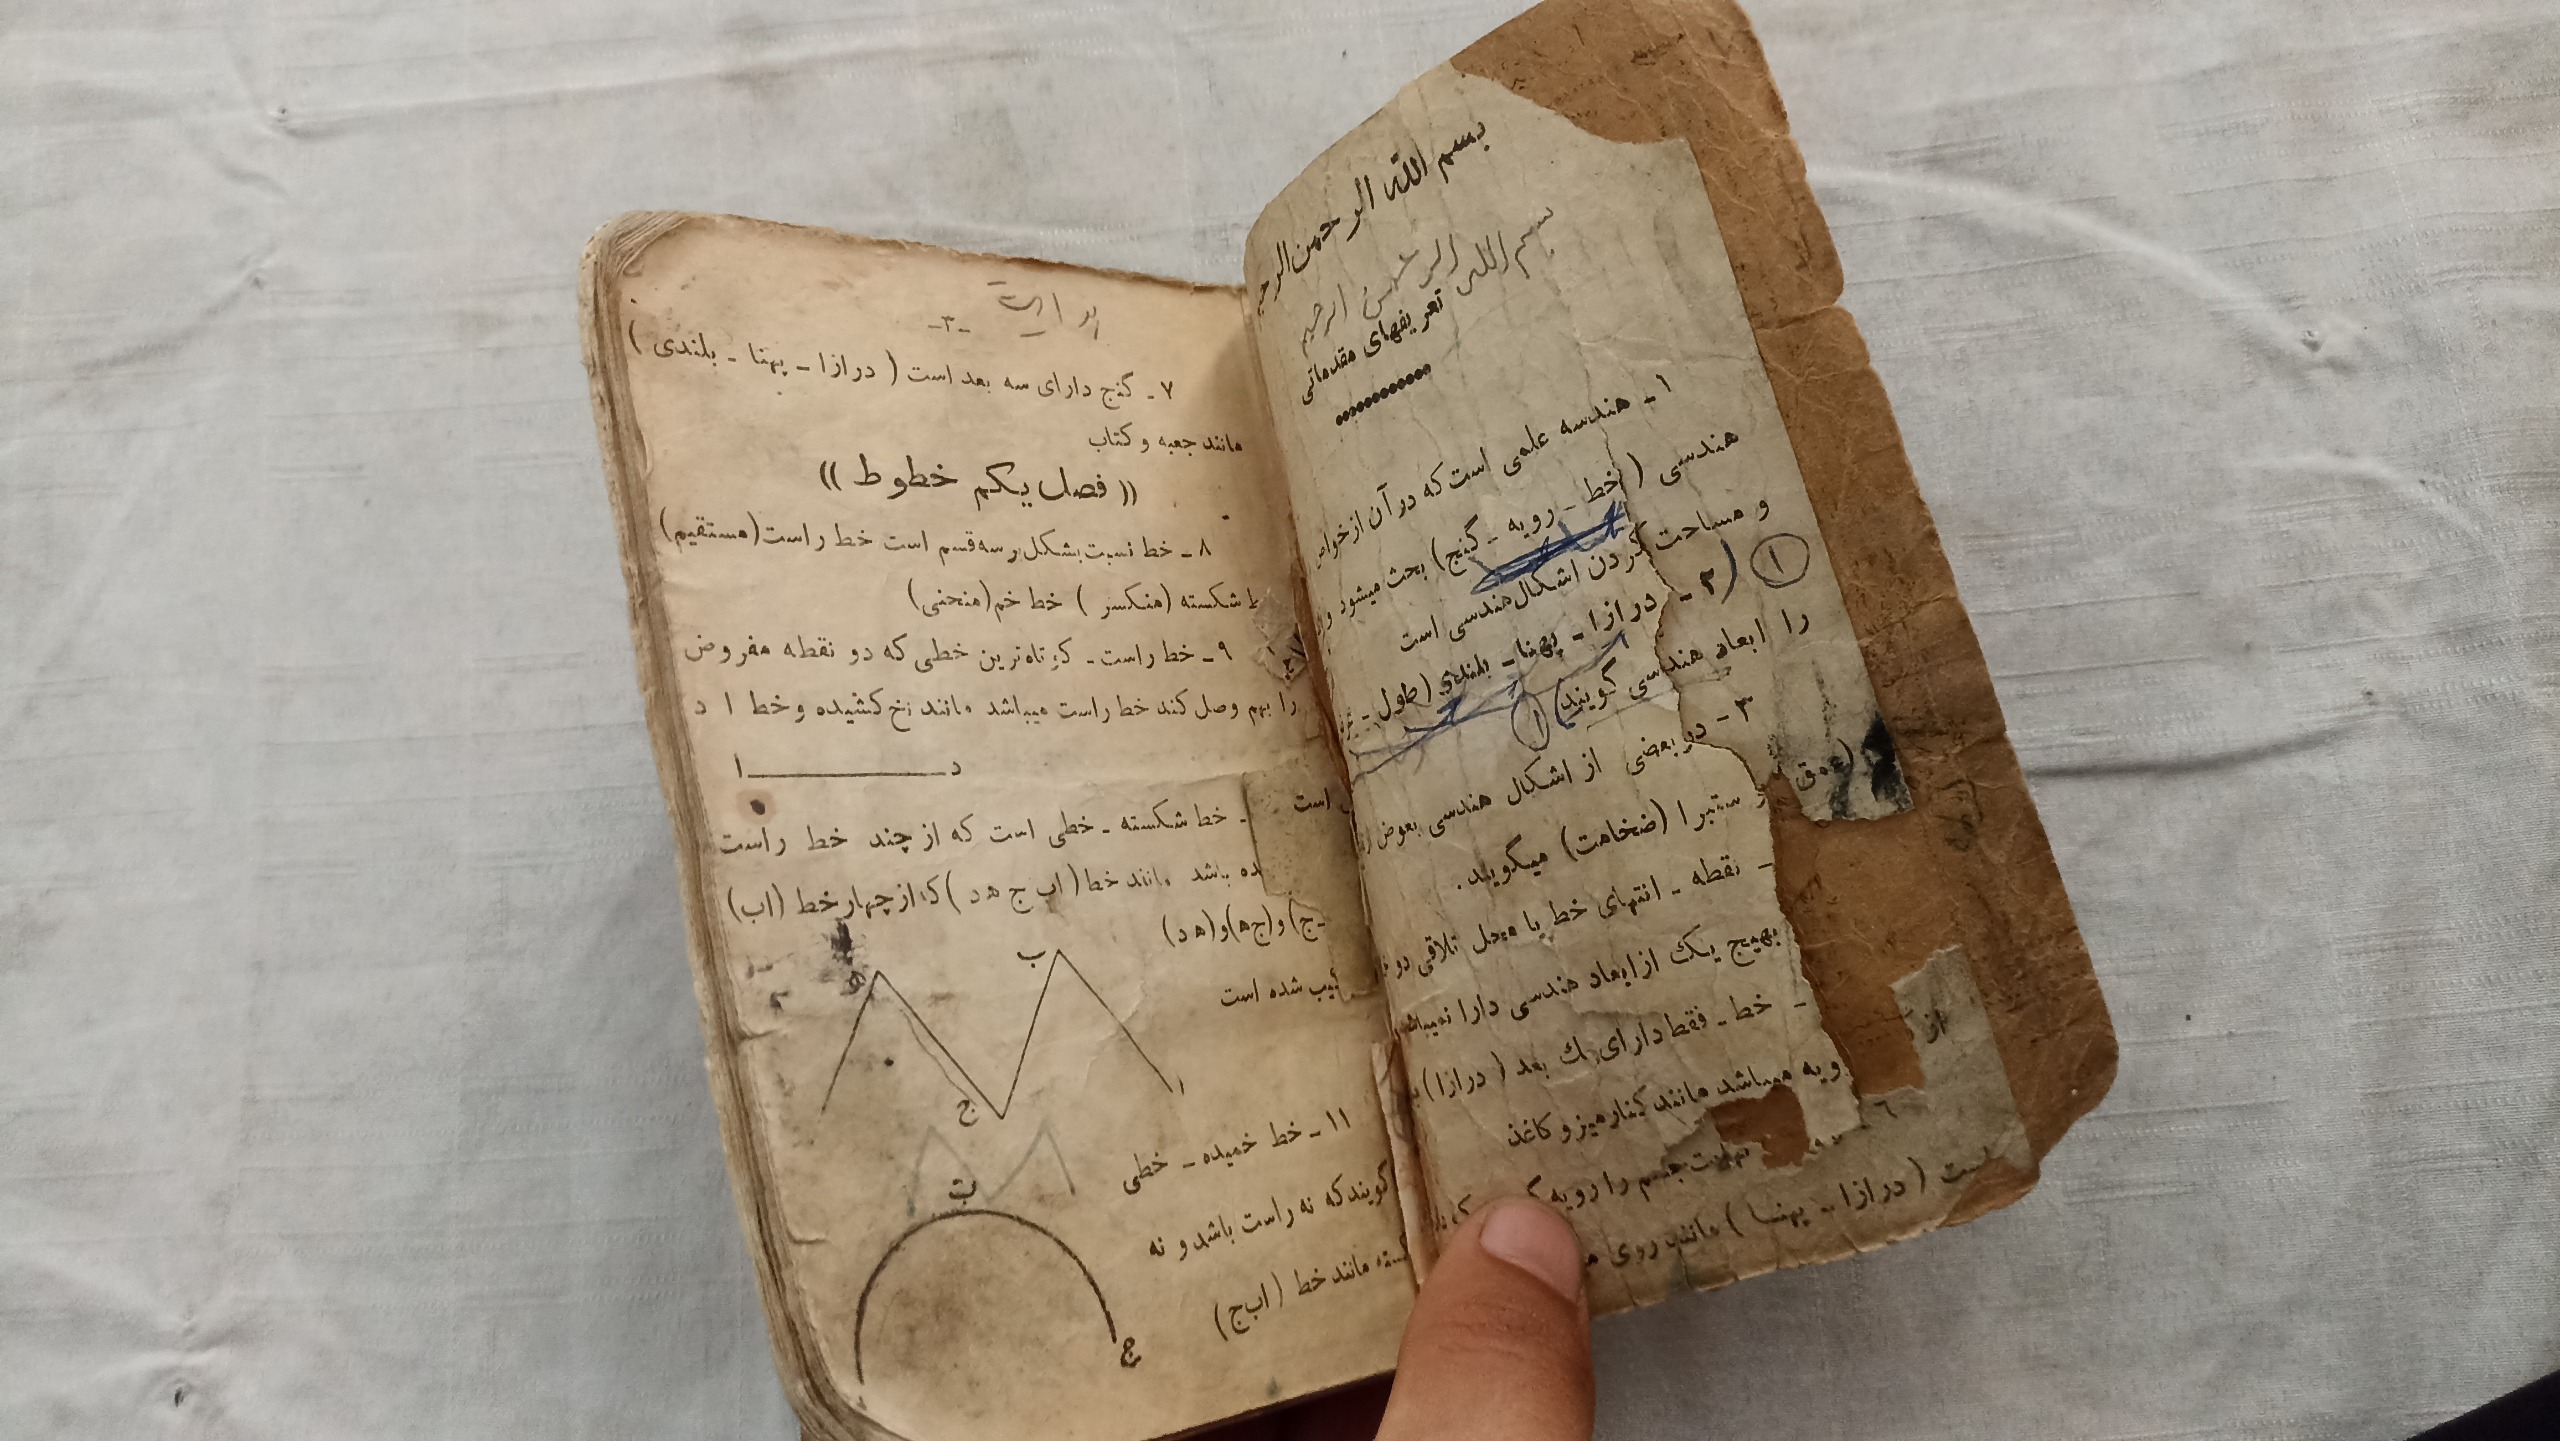 بسم الله الرحمن الرحیم
بسم الله الرحمن الرحیم
تعریفهای مقدماتی
۱ - هندسه علمی است که در آن از خواص
هندسی ( خط - رویه - گنج ) بحث میشود و
و مساحت کردن اشکال هندسی است
۱
( ۲ - درازا - پهنا - بلندی (طول -
را ابعاد هندسی گویند) ۱
۳ - در بعضی از اشکال هندسی بعوض
(عمق
ستبرا (ضخامت) میگویند.
- نقطه - انتهای خط یا محل تلاقی دو
بهیچ یک از ابعاد هندسی دارا نمیباشد
- خط - فقط دارای یك بعد ( درازا )
از
ویه میباشد مانند کنار میز و کاغذ
٦
جسم را رویه
است ( درازا - پهنا ) مانند روی
-۳-
۷ - گنج دارای سه بعد است ( درازا - پهنا - بلندی )
مانند جعبه و کتاب
(( فصل یکم خطوط ))
۸ - خط نسبت بشکل بر سه قسم است خط راست (مستقیم)
ط شکسته (منکسر ) خط خم (منحنی)
۹ - خط راست - کوتاه‌ترین خطی که دو نقطه مفروض
را بهم وصل کند خط راست میباشد مانند نخ کشیده و خط ا د
د ا
- خط شکسته - خطی است که از چند خط راست
است
ده باشد مانند خط ( اب ج ه د ) که از چهار خط (اب)
ج) و (ج ه) و (ه د)
یب شده است
ه ب
ج ا
۱۱ - خط خمیده - خطی
گویند که نه راست باشد و نه
سته مانند خط ( اب ج )
ب
ج